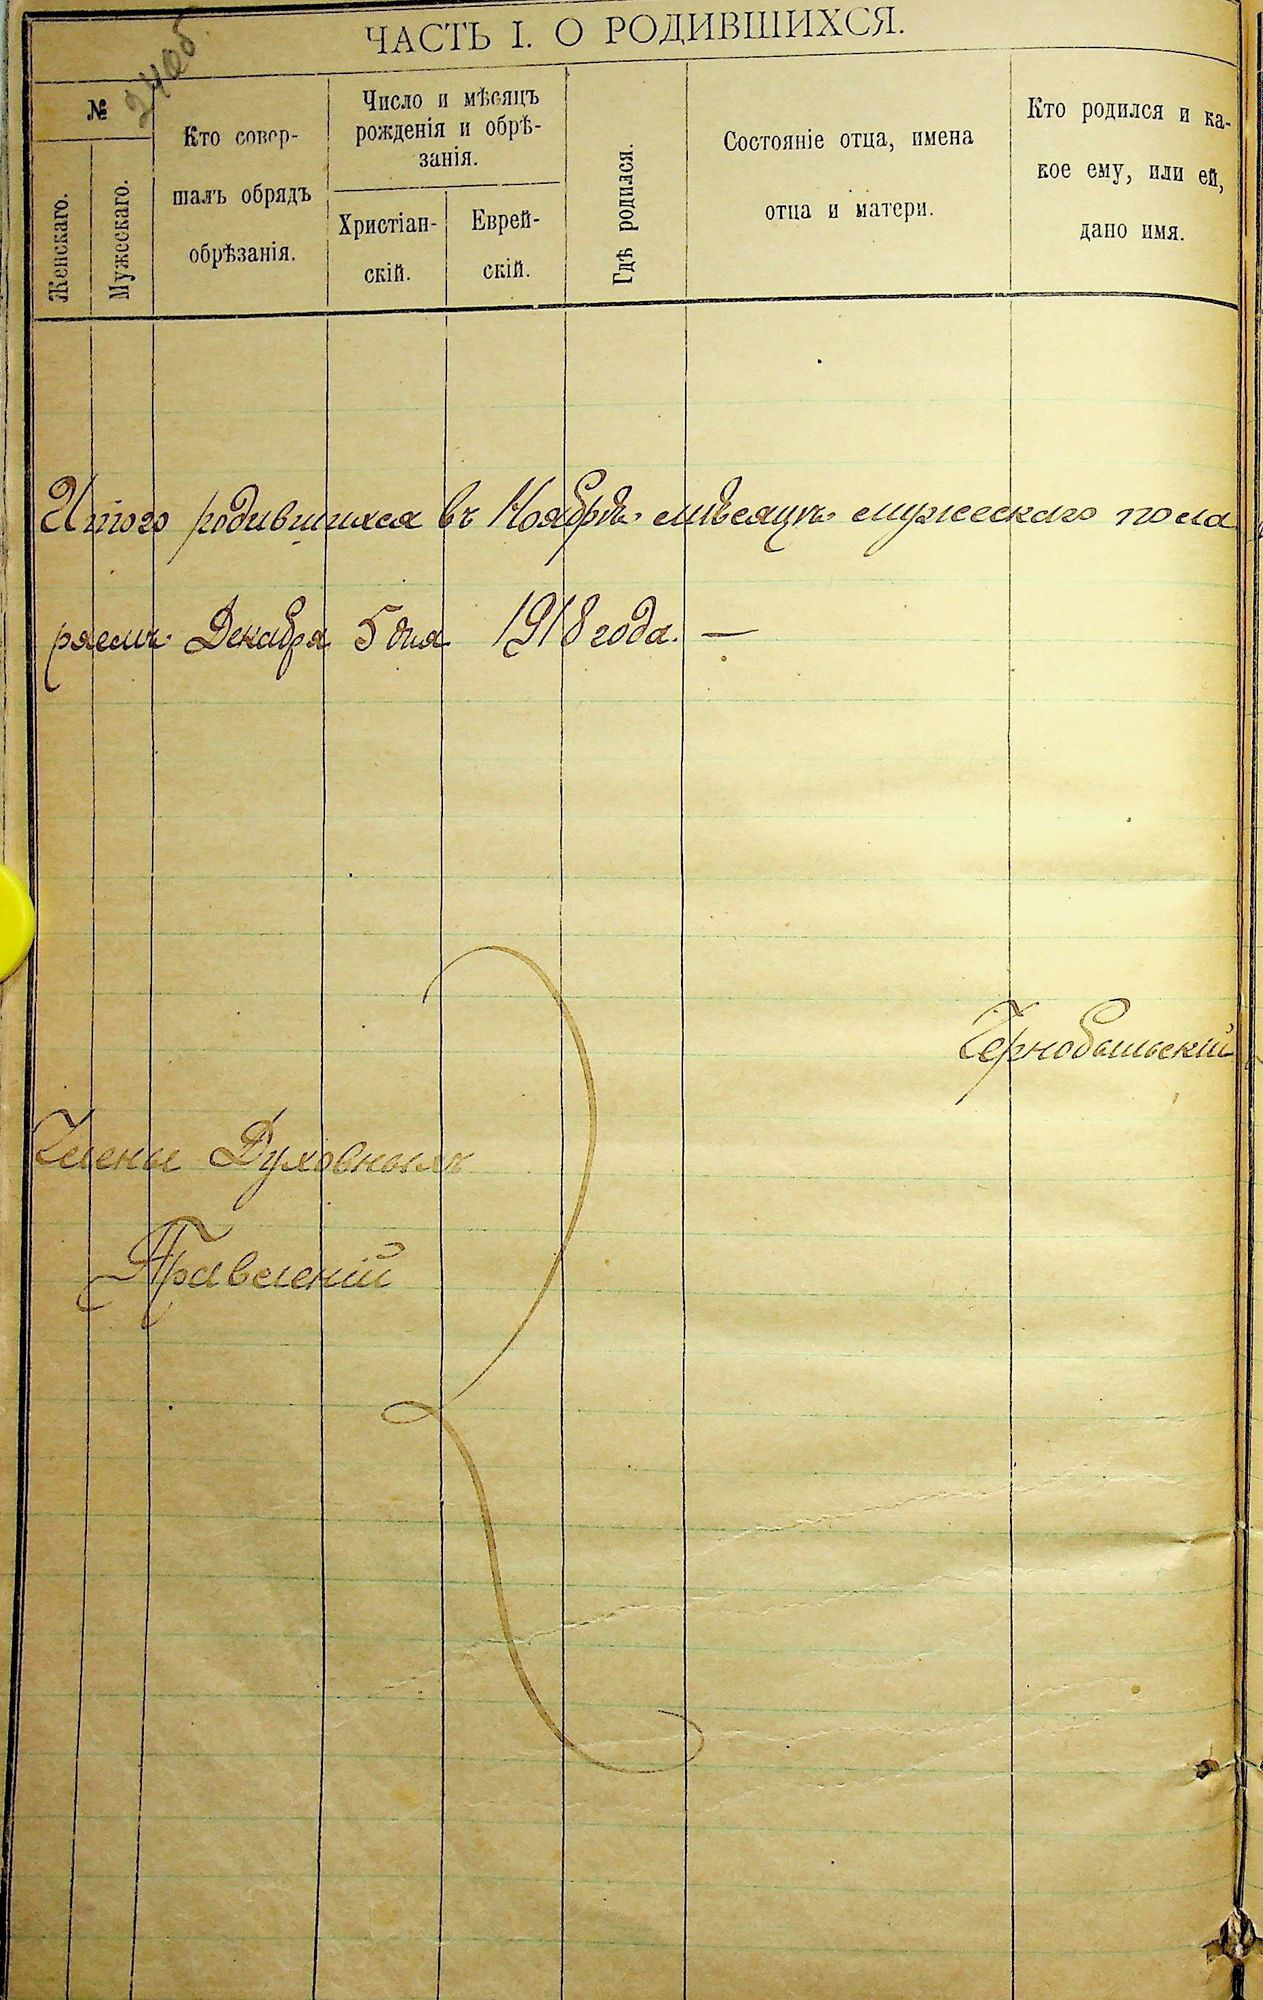 24об.
ЧАСТЬ I. О РОДИВШИХСЯ.
№
Женскаго.
Мужескаго.
Кто совер-
шалъ обрядъ
обрѣзанія.
Число и мѣсяцъ
рожденія и обрѣ-
занія.
Христіан-
скій.
Еврей-
скій.
Гдѣ родился.
Состояніе отца, имена
отца и матери.
Кто родился и ка-
кое ему, или ей,
дано имя.
Итого родившихся въ Ноябрѣ мѣсяцѣ мужескаго пола
ряемъ Декабря 5 дня 1918 года. —
Чернобыльскій
Члены Духовныхъ
Правленій